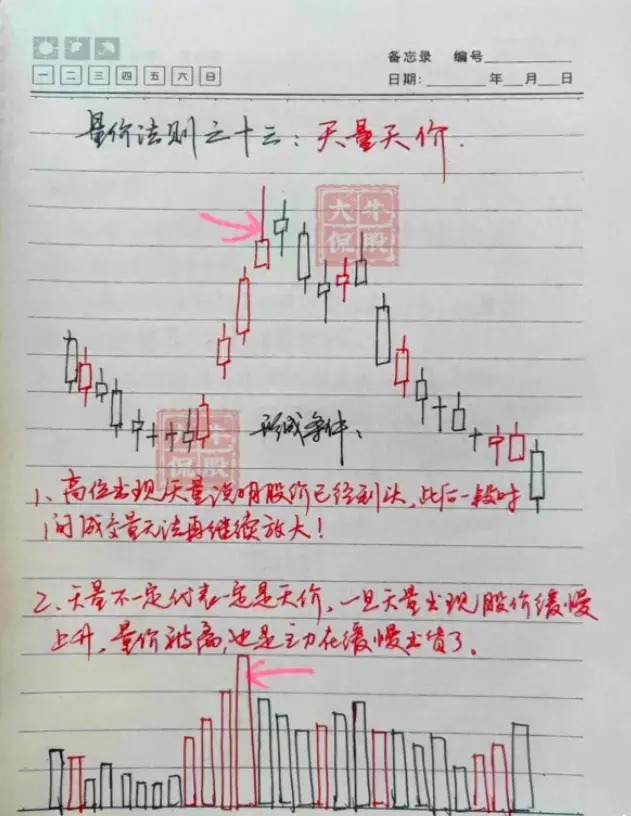 备忘录 编号
一 二 三 四 五 六 日
日期: 年 月 日
量价法则之十三：天量天价.
大牛
侃股
大牛
侃股
形成条件、
1、高位出现天量说明股价已经到头,此后一段时
间成交量无法再继续放大！
2、天量不一定代表一定是天价,一旦天量出现股价缓慢
上升,量价背离,也是主力在缓慢出货了.